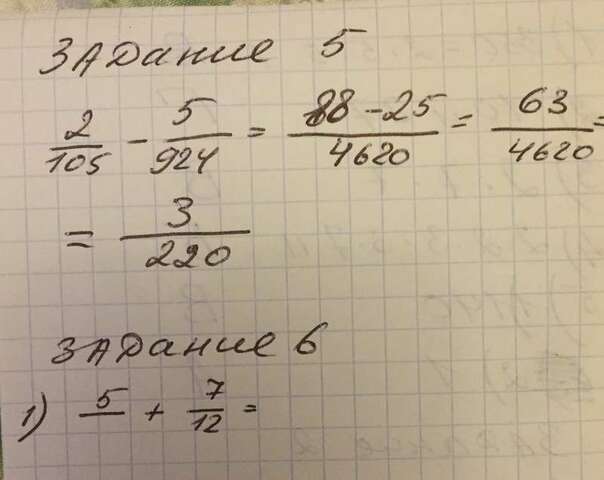 Задание 5
2/105 - 5/924 = 88-25/4620 = 63/4620 =
= 3/220
Задание 6
1) 5/ + 7/12 =